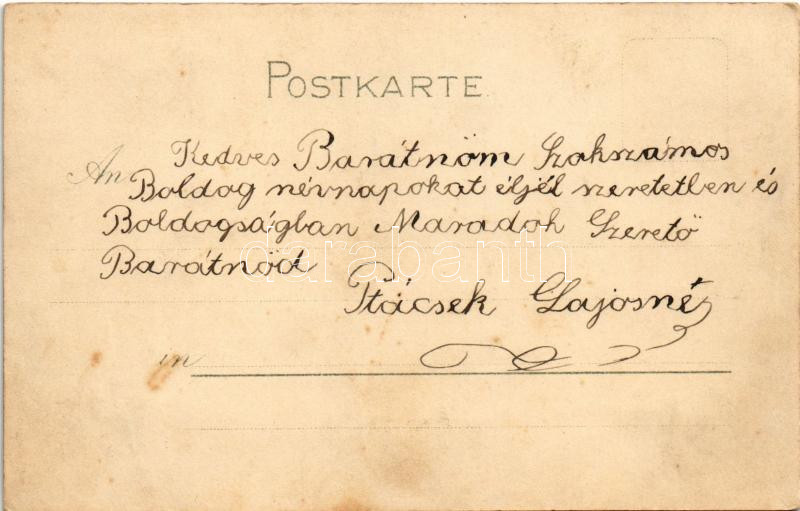 POSTKARTE
An Kedves Barátnöm Szokszámos
Boldog névnapokat éljél szeretetben és
Boldogságban Maradok Szeretö
Barátnöd
darabanth
Ptácsek Lajosné
in